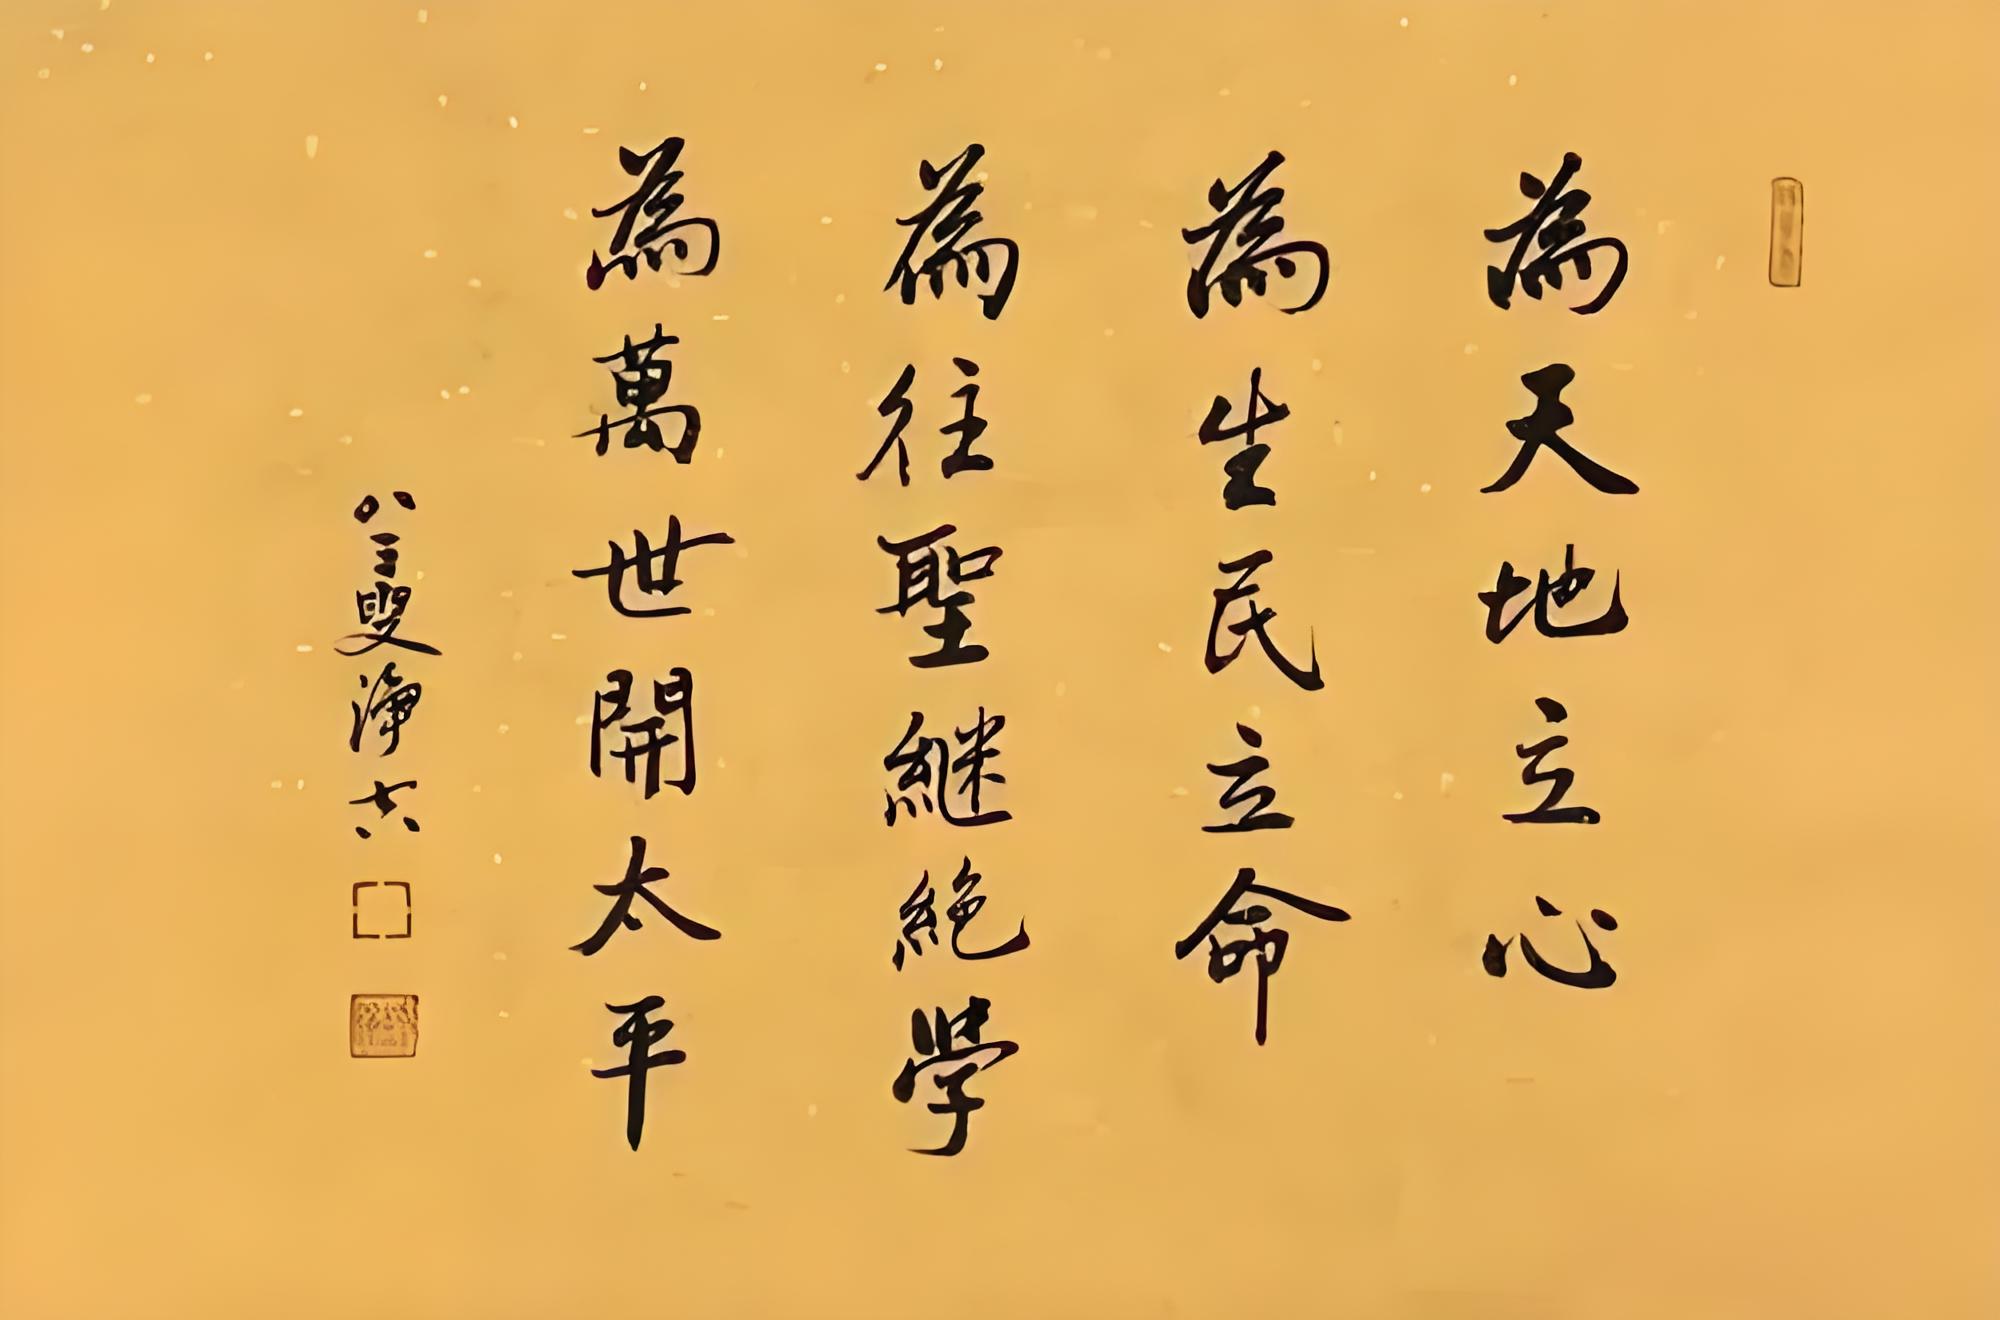 為天地立心
為生民立命
為往聖継絶學
為萬世開太平
八三叟淨六